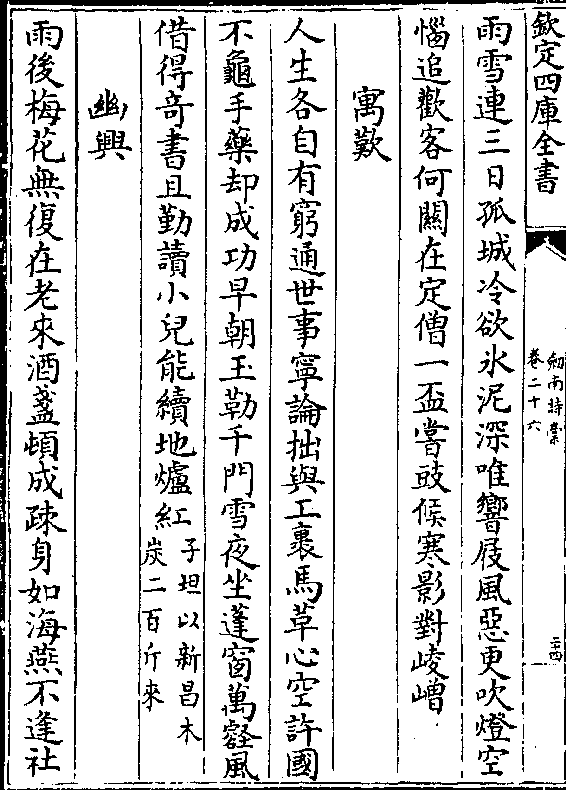 欽定四庫全書
劒南詩藁
卷二十六
二十四
雨雪連三日孤城冷欲氷泥深唯響屐風惡更吹燈空
惱追歡客何關在定僧一盃嘗豉候寒影對崚嶒
寓歎
人生各自有窮通世事寧論拙與工裹馬革心空許國
不龜手藥却成功早朝玉勒千門雪夜坐蓬窗萬壑風
借得奇書且勤讀小兒能續地爐紅子坦以新昌木
炭二百斤來
幽興
雨後梅花無復在老來酒盞頓成疎身如海燕不逢社